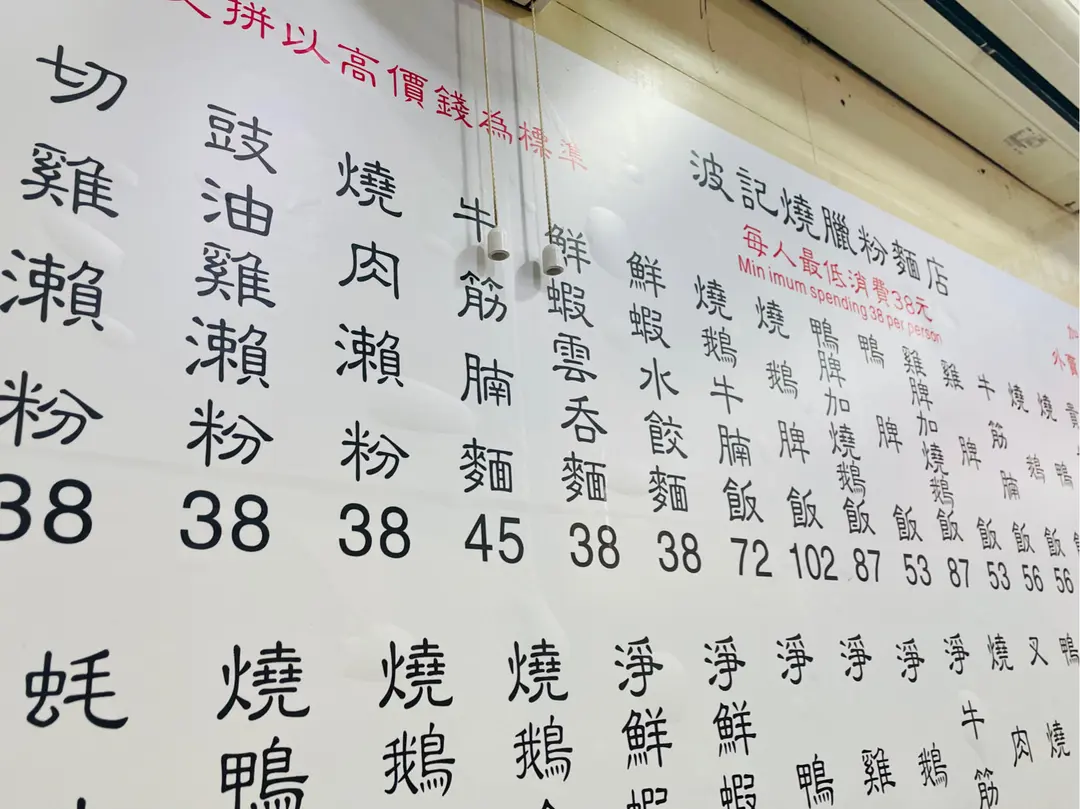 波記燒臘粉麵店
每人最低消費38元
Minimum spending 38 per person
拼以高價錢為標準
燒鴨飯
燒鵝飯 56
牛筋腩飯 56
雞脾飯 53
雞脾加燒鵝飯 87
鴨脾飯 53
鴨脾加燒鵝飯 87
燒鵝脾飯 102
燒鵝牛腩飯 72
鮮蝦水餃麵 38
鮮蝦雲呑麵 38
牛筋腩麵 45
燒肉瀨粉 38
豉油雞瀨粉 38
切雞瀨粉 38
鴨
叉燒
燒肉
淨牛筋
淨鵝
淨雞
淨鴨
淨鮮蝦
淨鮮蝦
燒鵝
燒鵝
燒鴨
蚝